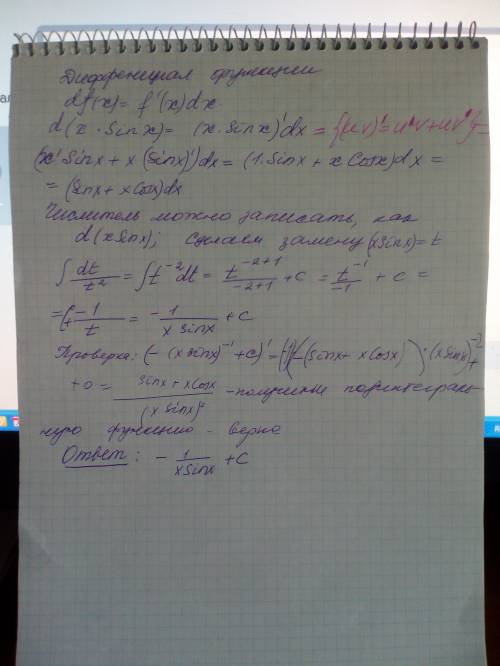 Дифференциал функции
df(x) = f'(x)dx
d(x · sinx) = (x·sinx)'dx = {(uv)' = u'v + uv'} =
(x'·sinx + x(sinx)')dx = (1·sinx + x cosx)dx =
= (sinx + x cosx)dx
Числитель можно записать, как
d(x sinx); сделаем замену (x sinx) = t
∫ dt/t² = ∫ t⁻² dt = t⁻²⁺¹/(-2+1) + c = t⁻¹/-1 + c =
= -1/t = - 1/(x sinx) + c
Проверка: (-(x sinx)⁻¹ + c)' = (-1)(-(sinx + x cosx))·(x sinx)⁻² +
+ 0 = (sinx + x cosx)/(x sinx)² - получение подинтеграль
ную функцию - верно
Ответ: - 1/(x sinx) + c